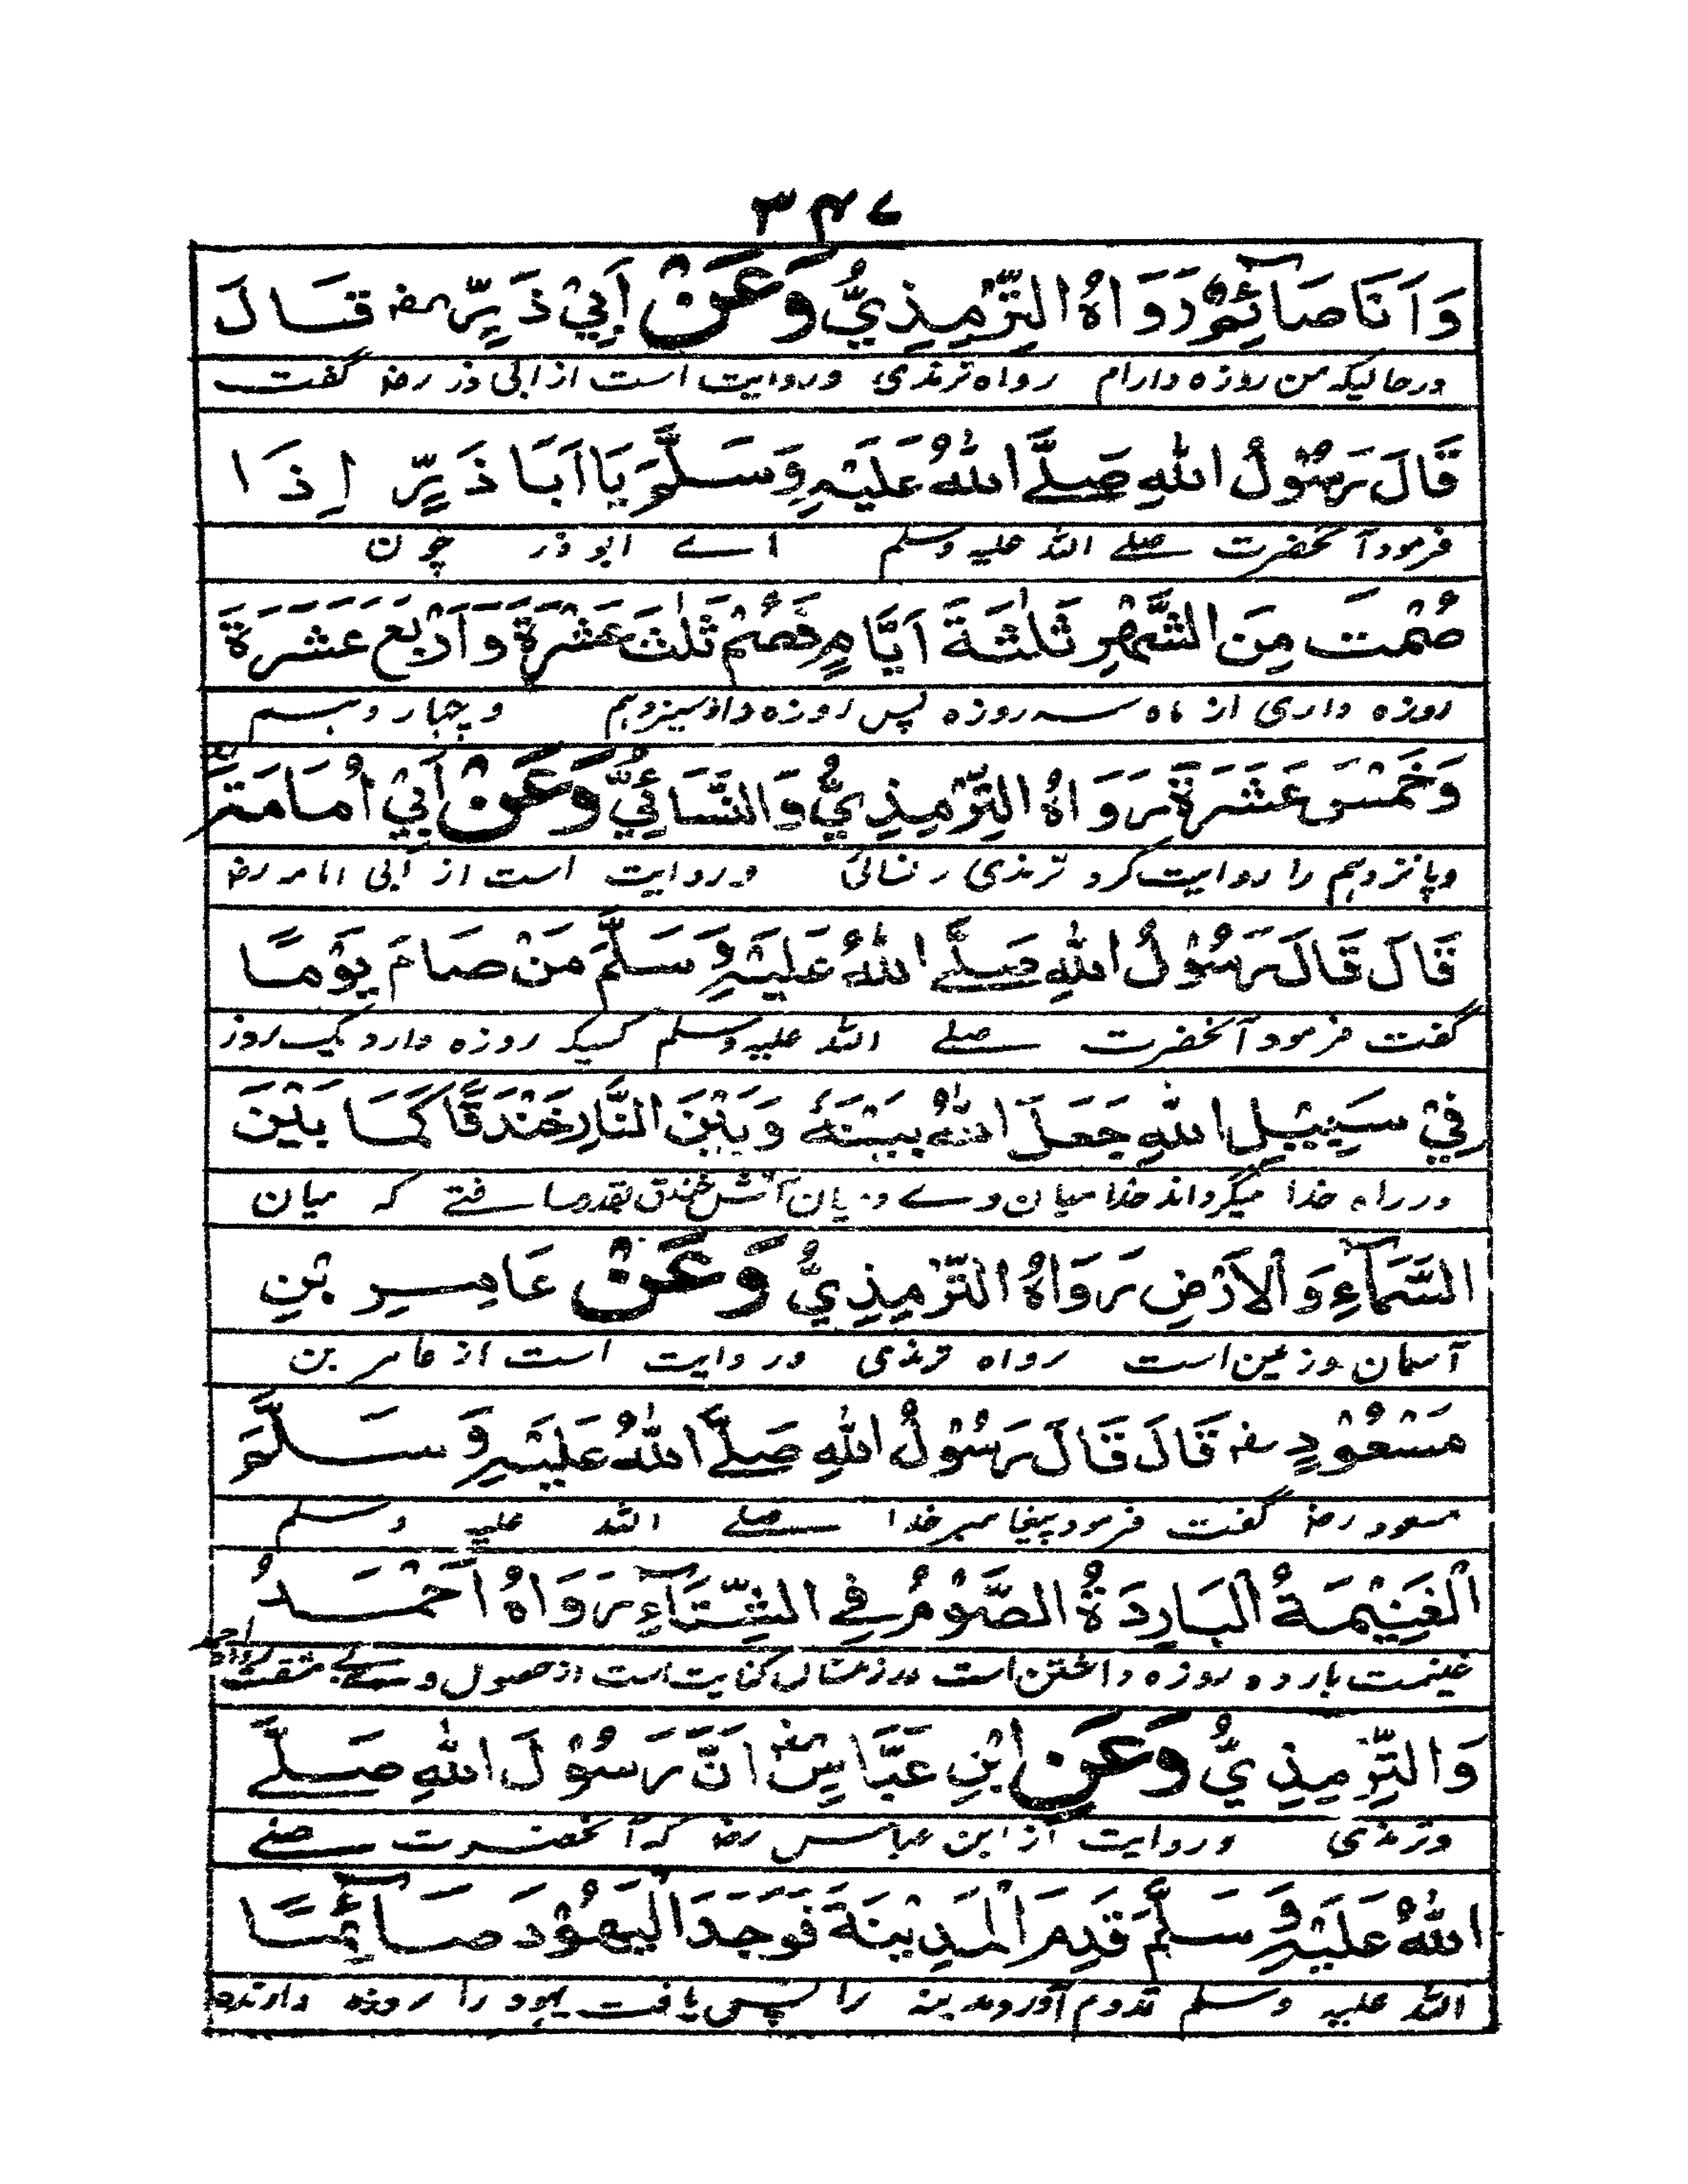 ۳۴۷
وَاَنَا صَائِمٌ رَوَاهُ التِّرْمِذِيُّ وَعَنْ اَبِيْ ذَرٍّ رضۃ قَالَ
درحالیکہ من روزہ دارام رواہ ترمذی وروایت است از ابی ذر رضہ گفت
قَالَ رَسُوْلُ اللهِ صَلَّے اللهُ عَلَيْهِ وَسَلَّمَ يَا اَبَا ذَرٍّ اِذَا
فرمود آنحضرت صلے اللہ علیہ وسلم اے ابو ذر چون
صُمْتَ مِنَ الشَّهْرِ ثَلٰثَةَ اَيَّامٍ فَصُمْ ثَلٰثَ عَشْرَةَ وَاَرْبَعَ عَشَرَةَ
روزہ داری از ماہ سہ روزہ پس روزہ دار سیزدہم وچہاردہم
وَخَمْسَ عَشَرَةَ رَوَاهُ التِّرْمِذِيُّ وَالنَّسَائِيُّ وَعَنْ اَبِيْ اُمَامَةَ رضۃ
وپانزدہم را روایت کرد ترمذی ونسائی وروایت است از ابی امامہ رضہ
قَالَ قَالَ رَسُوْلُ اللهِ صَلَّے اللهُ عَلَيْهِ وَسَلَّمَ مَنْ صَامَ يَوْمًا
گفت فرمود آنحضرت صلے اللہ علیہ وسلم کسیکہ روزہ دارد یک روز
فِيْ سَبِيْلِ اللهِ جَعَلَ اللهُ بَيْنَهُ وَبَيْنَ النَّارِ خَنْدَقًا كَمَا بَيْنَ
در راہ خدا میگرداند خدا میان وے ومیان آتش خندق بقدر مسافتے کہ میان
السَّمَآءِ وَالْاَرْضِ رَوَاهُ التِّرْمِذِيُّ وَعَنْ عَامِرِ بْنِ
آسمان وزمین است رواہ ترمذی وروایت است از عامر بن
مَسْعُوْدٍ رضۃ قَالَ قَالَ رَسُوْلُ اللهِ صَلَّے اللهُ عَلَيْهِ وَسَلَّمَ
مسعود رضہ گفت فرمود پیغامبر خدا صلے اللہ علیہ وسلم
اَلْغَنِيْمَةُ الْبَارِدَةُ الصَّوْمُ فِي الشِّتَآءِ رَوَاهُ اَحْمَدُ
غنیمت باردہ روزہ داشتن است در زمستان کنایت است از حصول وے بے مشقت رواہ احمد
وَالتِّرْمِذِيُّ وَعَنِ ابْنِ عَبَّاسٍ رضۃ اَنَّ رَسُوْلَ اللهِ صَلَّے
وترمذی وروایت از ابن عباس رضہ کہ آنحضرت صلے
اللهُ عَلَيْهِ وَسَلَّمَ قَدِمَ الْمَدِيْنَةَ فَوَجَدَ الْيَهُوْدَ صَآئِمًا
اللہ علیہ وسلم قدوم آورد مدینہ را پس یافت یہود را روزہ دارندہ